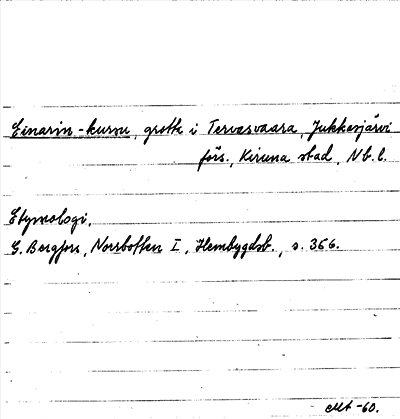 Einarin-kursu, grotta i Tervasvaara, Jukkasjärvi
förs., Kiruna stad, Nb. l.
Etymologi.
G. Bergfors, Norrbotten I, Hembygdsb., s. 366.
MA -60.